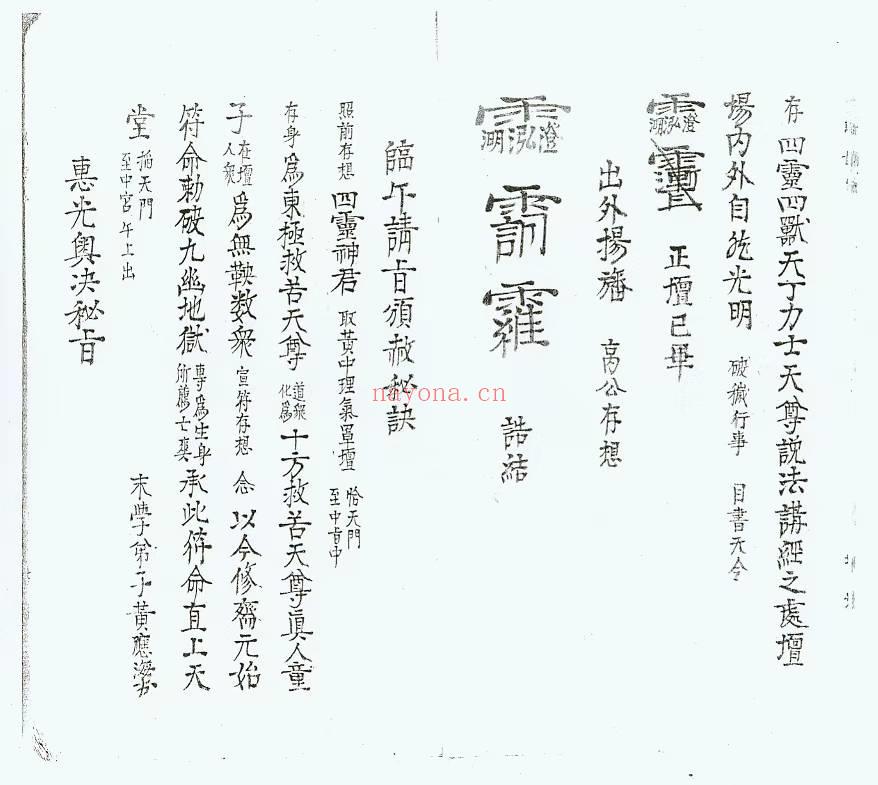 存四靈四獸天丁力士天尊説法講經之處壇
場内外自然光明 破穢行事 目書天令
正壇已畢
出外揚旛 高公存想
誥結
臨午請旨頒赦秘訣
照前存想四靈神君 取黃中理氣罩壇 恰天門至中旨中
存身爲東極救苦天尊 道衆化爲十方救苦天尊眞人童
子 在壇人衆爲無鞅数衆 宣符存想 念 以今修齋元始
符命勅破九幽地獄 專爲生身所薦亡奠承此符命直上天
堂 掐天門至中宮午上出
末學弟子黃應
惠光奥决秘旨
nayona.cn